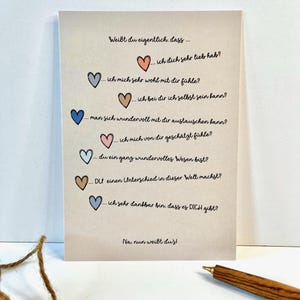 Weißt du eigentlich, dass ...
... ich dich sehr lieb hab?
... ich mich sehr wohl mit dir fühle?
... ich bei dir ich selbst sein kann?
... man sich wundervoll mit dir austauschen kann?
... ich mich von dir geschätzt fühle?
... du ein ganz wundervolles Wesen bist?
... DU einen Unterschied in dieser Welt machst?
... ich sehr dankbar bin, dass es DICH gibt?
Na, nun weißt du's!